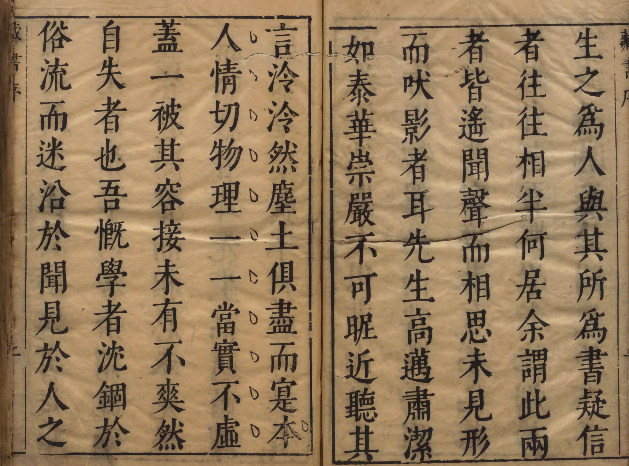 生之為人與其所為書疑信
者往往相半何居余謂此兩
者皆遙聞聲而相思未見形
而吠影者耳先生高邁肅潔
如泰華崇嚴不可昵近聽其
言泠泠然塵土俱盡而寔本
人情切物理一一當實不虛
蓋一被其容接未有不爽然
自失者也吾慨學者沈錮於
俗流而迷沿於聞見於人之